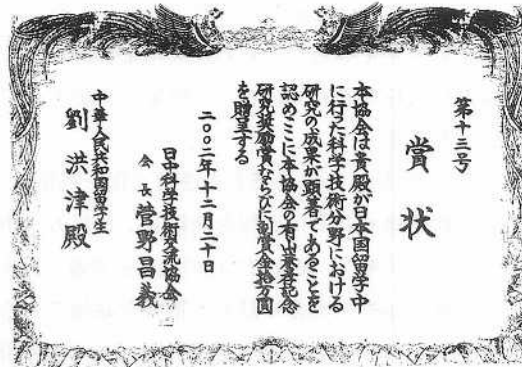 第十三号
賞状
本協会は貴殿が日本国留学中
に行った科学技術分野における
研究の成果が顕著であることを
認めここに本協会の有山兼孝記念
研究奨励賞ならびに副賞金拾万圓
を贈呈する
二〇〇二年十二月二十日
日中科学技術交流協会
会長 菅野昌義
中華人民共和国留学生
劉洪津殿